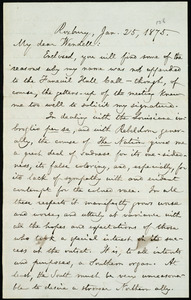 Roxbury, Jan. 25, 1875.
My dear Wendell:
Enclosed, you will find some of the
reasons why my name was not appended
to the Faneuil Hall Call – though, of
course, the getters-up of the meeting knew
me too well to solicit my signature.
In dealing with the Louisiana im-
broglio per se, and with Rebeldom gener-
ally, the course of The Nation gives me
a great deal of sadness for its one-sided-
ness, its false coloring, and, especially, for
its lack of sympathy with and evident
contempt for the colored race. In all
these respects it manifestly grows worse
and worse, and utterly at variance with
all the hopes and expectations of those
who took a special interest in its suc-
cess at the outset. It is, to all intents
and purposes, a Southern organ. At
least, the South must be very unreason-
able to desire a stronger Northern ally.